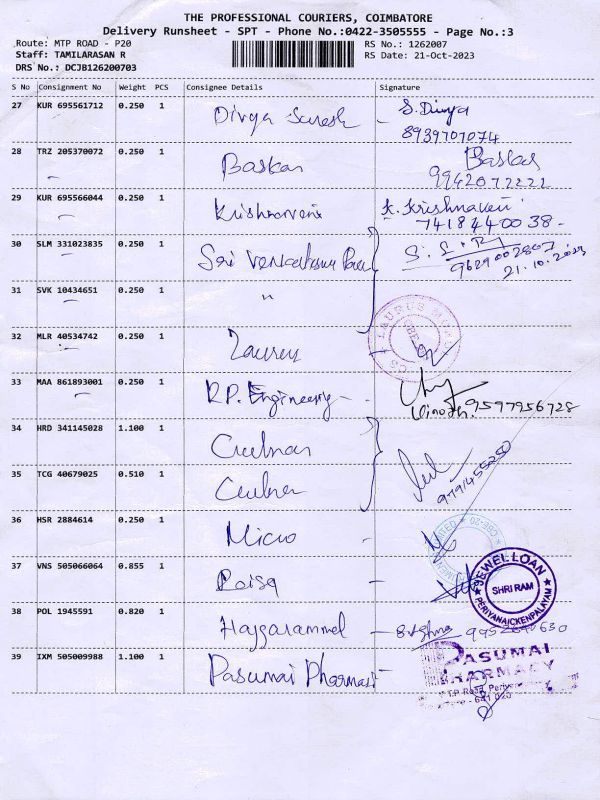 THE PROFESSIONAL COURIERS, COIMBATORE
Delivery Runsheet - SPT - Phone No.:0422-3505555 - Page No.:3
Route: MTP ROAD - P20 RS No.: 1262007
Staff: TAMILARASAN R RS Date: 21-Oct-2023
DRS No.: DCJB126200703
S No Consignment No Weight PCS Consignee Details Signature
27 KUR 695561712 0.250 1 Divya Suresh S. Divya
8939707074
28 TRZ 205370072 0.250 1 Baskar Baskar
9942072222
29 KUR 695566044 0.250 1 Krishnaveni K. Krishnaveni
7418440038-
30 SLM 331023835 0.250 1 Sri
9629002807
21.10.2023
31 SVK 10434651 0.250 1 "
32 MLR 40534742 0.250 1 LAURUS
33 MAA 861893001 0.250 1 R.P. Engineering -
Vinoth. 9597956728
34 HRD 341145028 1.100 1
35 TCG 40679025 0.510 1 9791455250
36 HSR 2884614 0.250 1 Micro -
37 VNS 505066064 0.855 1 - JEWEL LOAN
SHRI RAM
PERIYANAICKENPALAYAM
38 POL 1945591 0.820 1
39 IXM 505009988 1.100 1 Pasumai Pharmasi - PASUMAI
PHARMACY